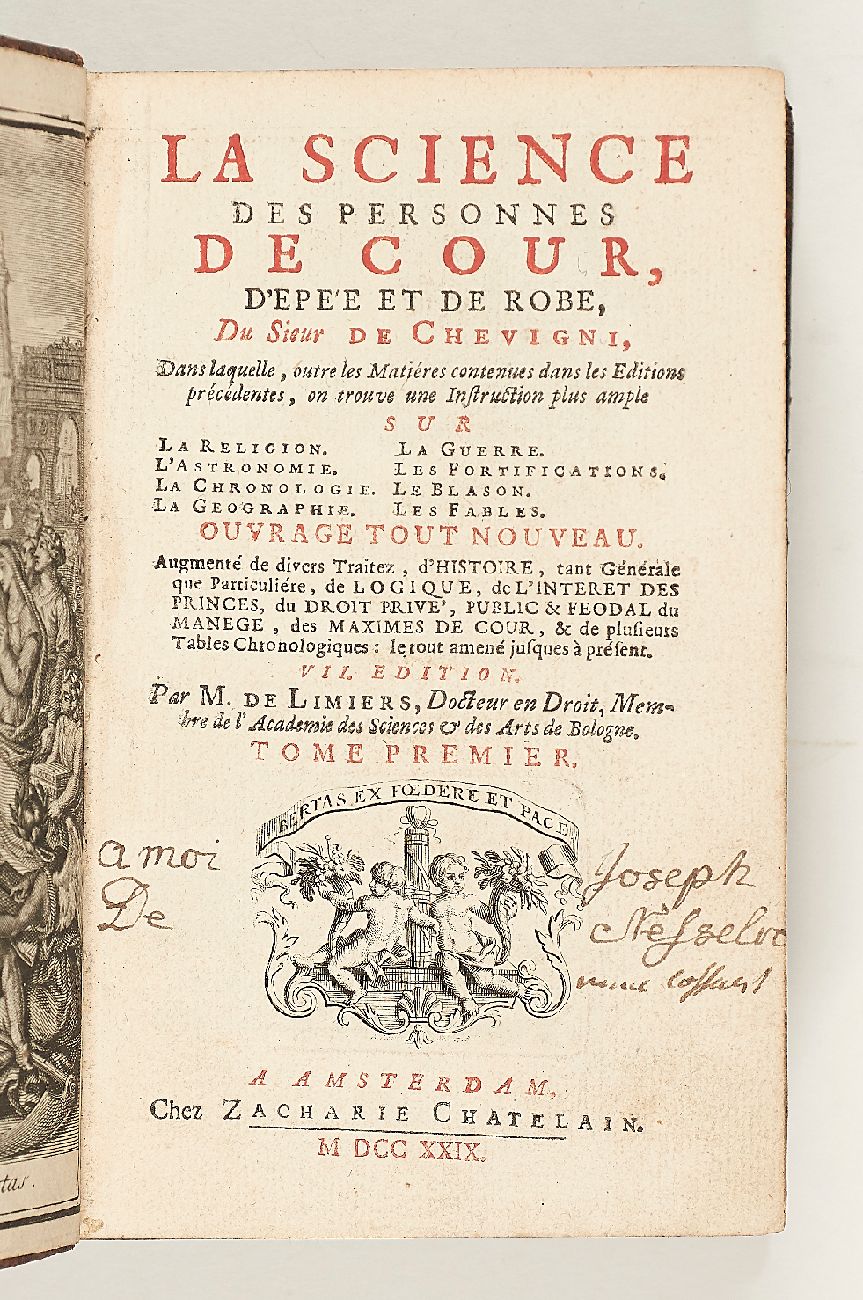 LA SCIENCE
DES PERSONNES
DE COUR,
D'EPE'E ET DE ROBE,
Du Sieur DE CHEVIGNI,
Dans laquelle, outre les Matiéres contenues dans les Editions
précédentes, on trouve une Instruction plus ample
SUR
LA RELIGION. LA GUERRE.
L'ASTRONOMIE. LES FORTIFICATIONS.
LA CHRONOLOGIE. LE BLASON.
LA GEOGRAPHIE. LES FABLES.
OUVRAGE TOUT NOUVEAU.
Augmenté de divers Traitez, d'HISTOIRE, tant Générale
que Particuliére, de LOGIQUE, de L'INTERET DES
PRINCES, du DROIT PRIVE', PUBLIC & FEODAL du
MANEGE, des MAXIMES DE COUR, & de plusieurs
Tables Chronologiques: le tout amené jusques à présent.
VII. EDITION.
Par M. DE LIMIERS, Docteur en Droit, Mem-
bre de l'Academie des Sciences & des Arts de Bologne.
TOME PREMIER.
BERTAS EX FŒDERE ET PACE
a moi Joseph
De
A AMSTERDAM,
Chez ZACHARIE CHATELAIN.
M DCC XXIX.
tas.